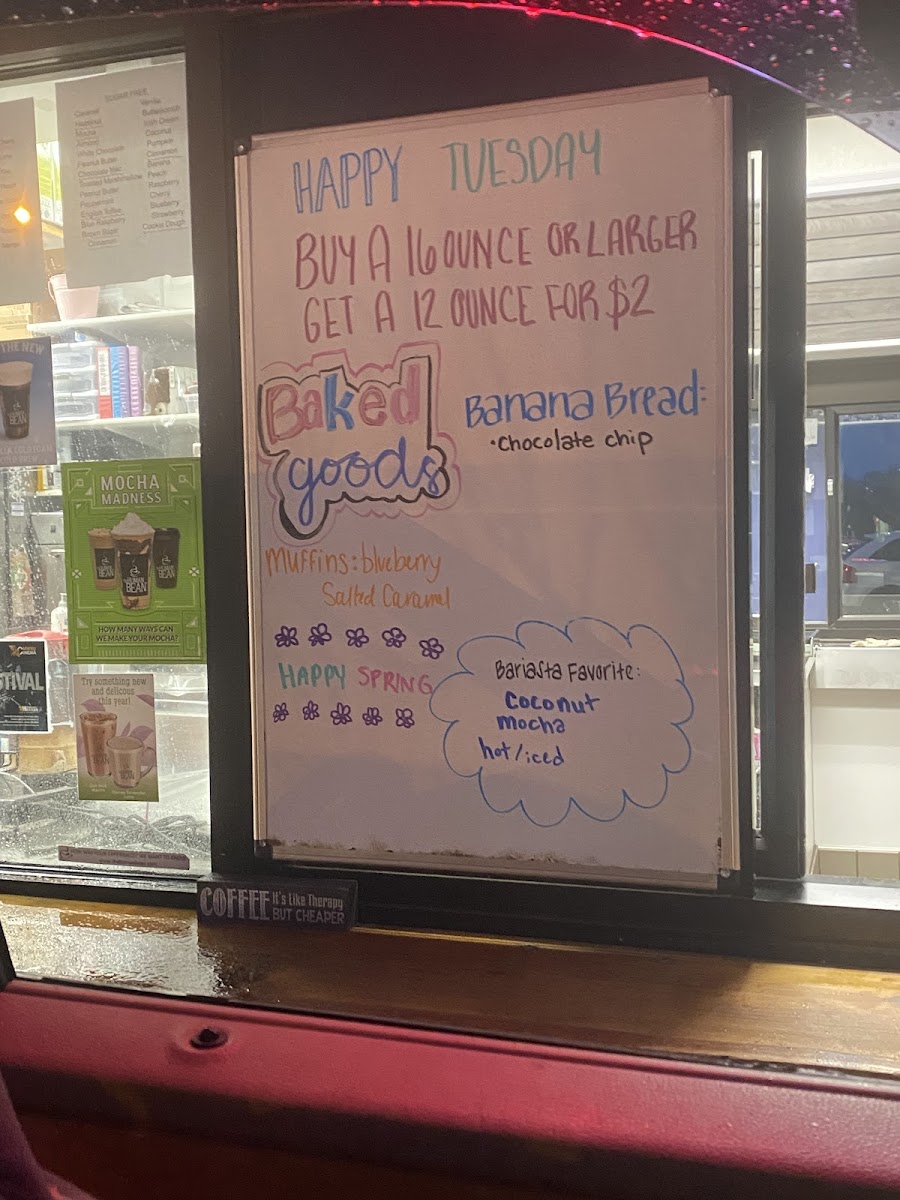 HAPPY TUESDAY
BUY A 16 OUNCE OR LARGER
GET A 12 OUNCE FOR $2
Baked
goods
Banana Bread:
•chocolate chip
Muffins: blueberry
Salted Caramel
HAPPY SPRING
Bariasta Favorite:
Coconut
mocha
hot/iced
SUGAR FREE
Caramel
Hazelnut
Mocha
Almond
White Chocolate
Peanut Butter
Chocolate Mac
Toasted Marshmallow
Peanut Butter
Peppermint
English Toffee
Blue Raspberry
Brown Sugar
Cinnamon
Vanilla
Butterscotch
Irish Cream
Coconut
Pumpkin
Cinnamon
Banana
Peach
Raspberry
Cherry
Blueberry
Strawberry
Cookie Dough
THE NEW
MOCHA
MADNESS
HUMAN
BEAN
HOW MANY WAYS CAN
WE MAKE YOUR MOCHA?
TIVAL
Try something new
and delicous
this year!
COFFEE It's Like Therapy
BUT CHEAPER